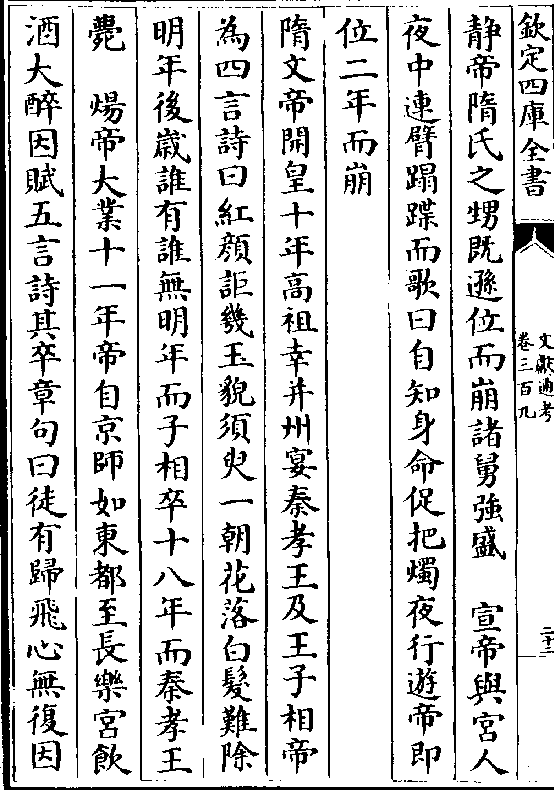 欽定四庫全書
文獻通考
卷三百九
二十二
静帝隋氏之甥既遜位而崩諸舅強盛　宣帝與宮人
夜中連臂蹋蹀而歌曰自知身命促把燭夜行遊帝即
位二年而崩
隋文帝開皇十年高祖幸并州宴秦孝王及王子相帝
為四言詩曰紅顔詎幾玉貌須臾一朝花落白髮難除
明年後歳誰有誰無明年而子相卒十八年而秦孝王
薨　煬帝大業十一年帝自京師如東都至長樂宮飲
酒大醉因賦五言詩其卒章句曰徒有歸飛心無復因